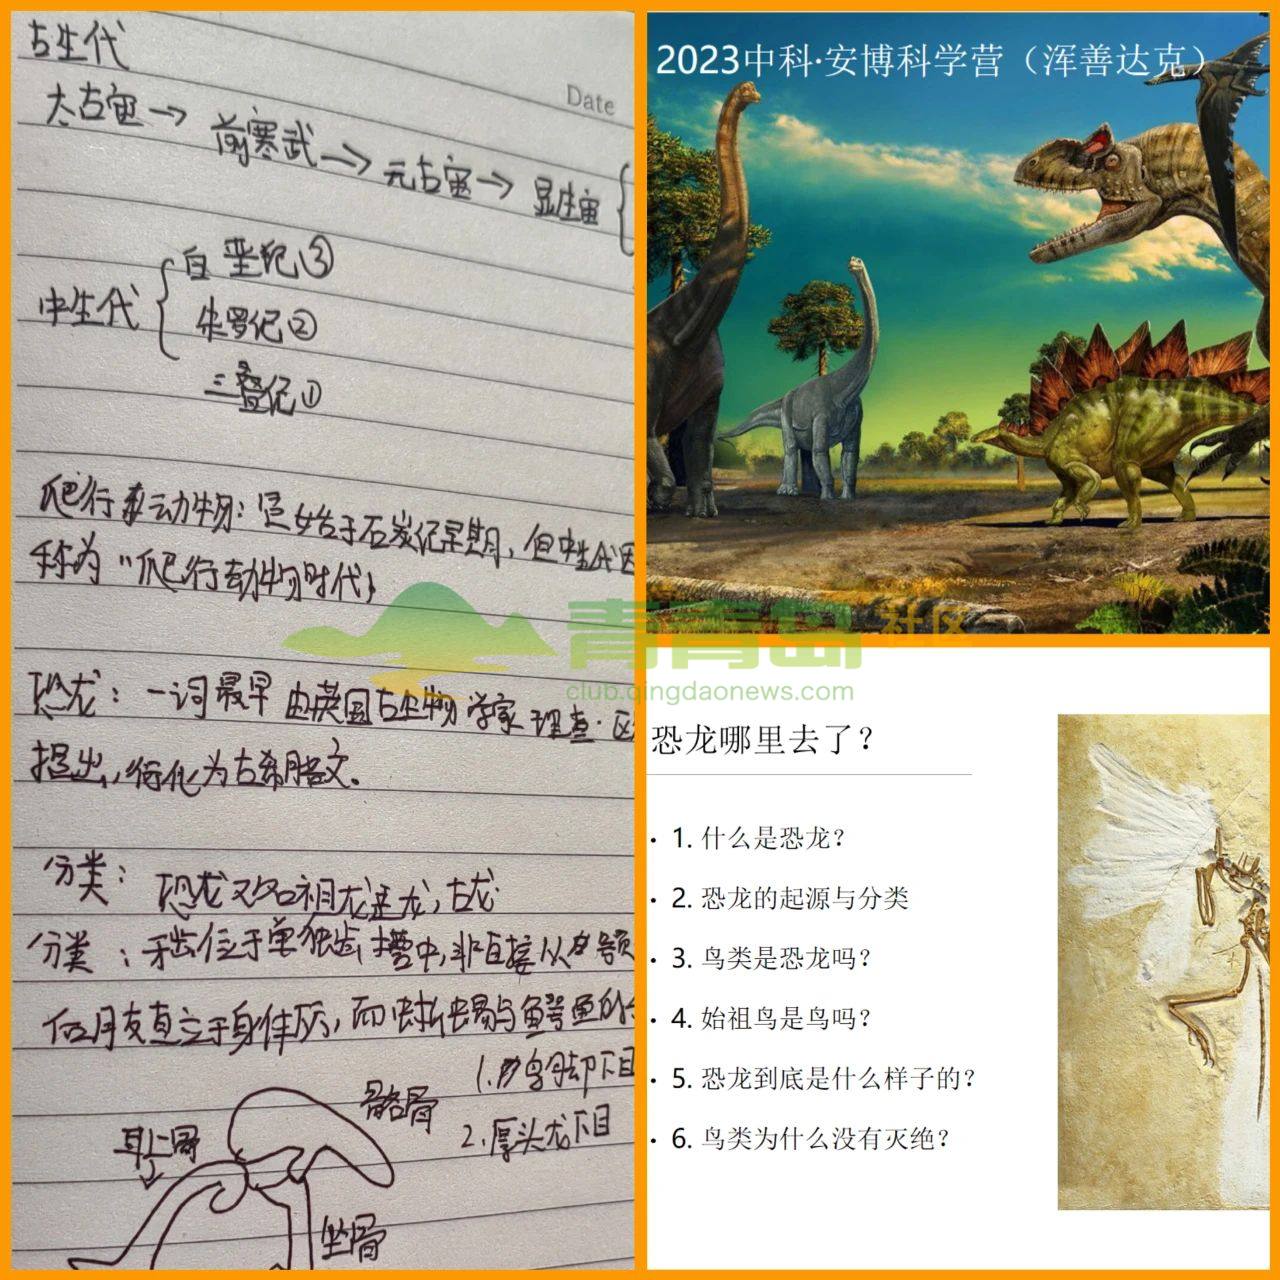 古生代
Date
太古宙→前寒武→元古宙→显生宙{
中生代{白垩纪③
朱罗纪②
三叠纪①
爬行动物:是始于石炭纪早期,但中生代因
称为“爬行动物时代,
恐龙:一词最早由英国古生物学家理查·区
提出,衍化为古希腊文。
分类:恐龙又名祖龙是龙,古龙
分类:牙齿位于单独齿槽中,非直接从
四肢直立于身体下,而蜥蜴与鳄鱼的
1.鸟却下目
2.厚头龙下目
髂骨
耳上骨
坐骨
2023中科·安博科学营(浑善达克)
青青岛社区
club.qingdaonews.com
恐龙哪里去了?
• 1. 什么是恐龙?
• 2. 恐龙的起源与分类
• 3. 鸟类是恐龙吗?
• 4. 始祖鸟是鸟吗?
• 5. 恐龙到底是什么样子的?
• 6. 鸟类为什么没有灭绝?